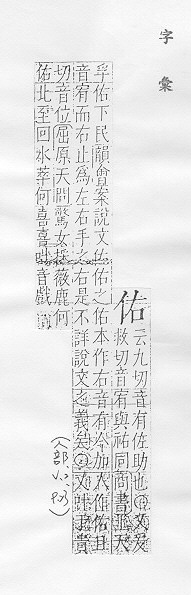 字彙
佑
云九切音有佐助也又爰
救切音宥與祐同商書上天
孚佑下民韻會案說文佐佑之佑本作右音有今加人作佑且
音宥而右止為左右手之右是不詳說文之義矣又叶于貴
切音位屈原天問驚女採薇鹿何
佑北至回水萃何喜喜叶音戲